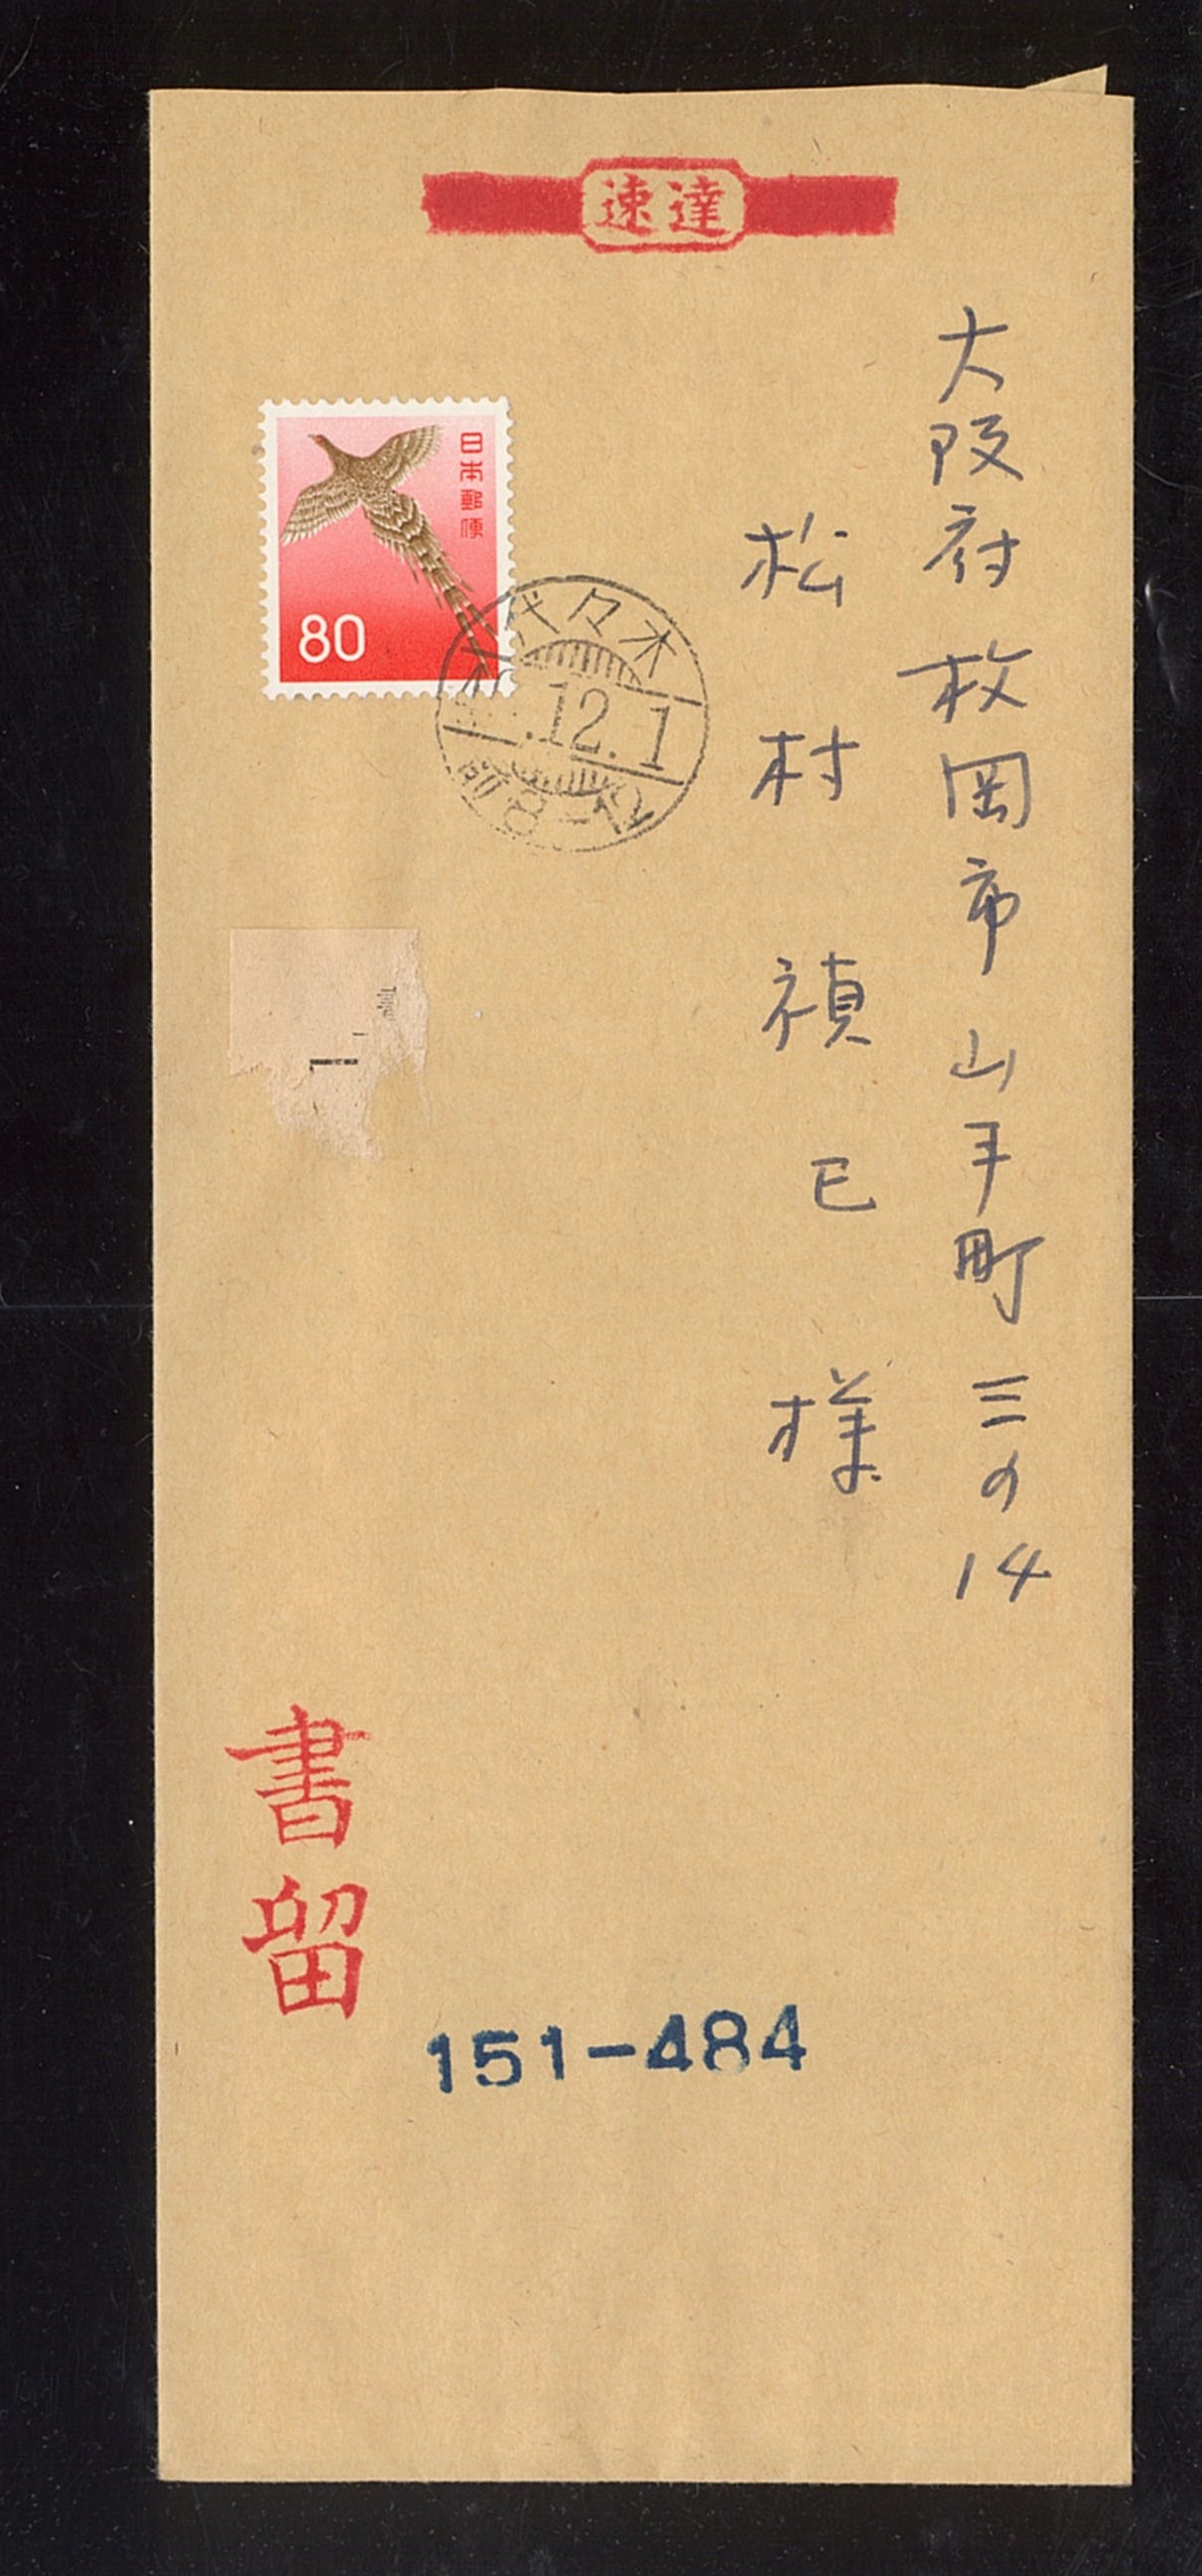 速達
大阪府枚岡市山手町三の14
松村禎巳様
日本郵便
80
代々木
.12.1
前8-12
書留
151-484